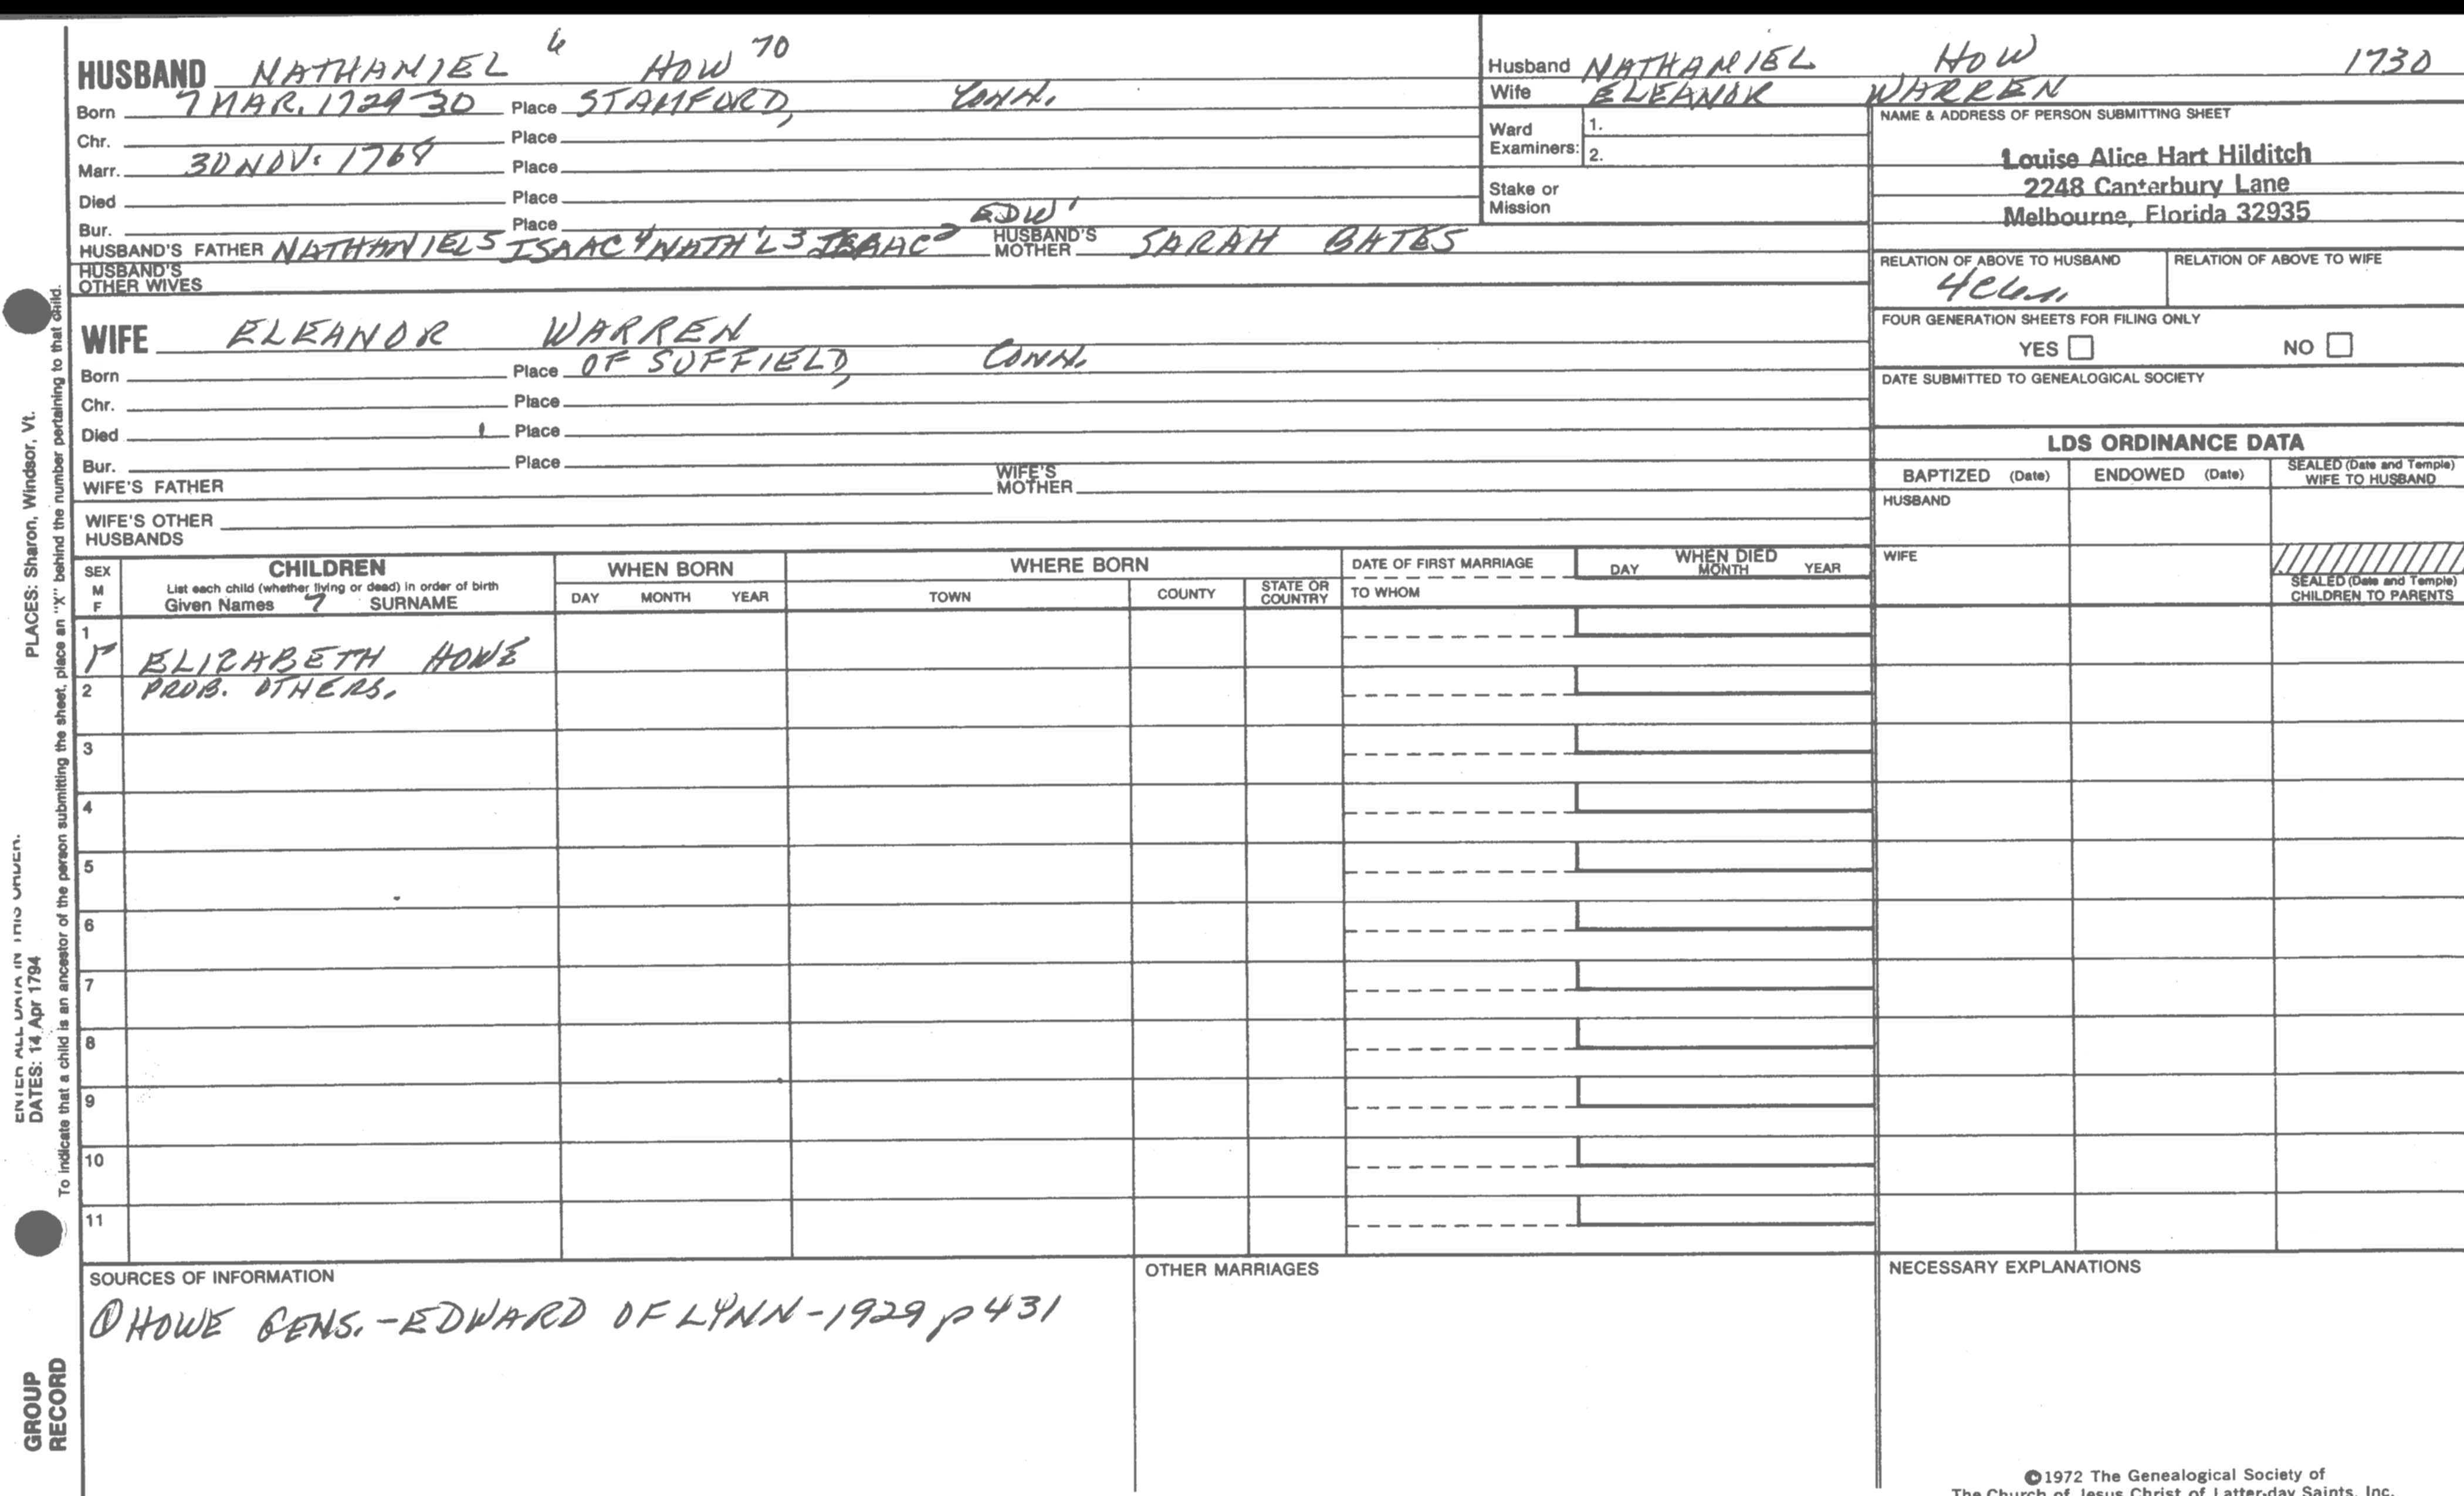 HUSBAND NATHANIEL 6 HOW 70
Born 7 MAR. 1729-30 Place STAMFORD, CONN.
Chr. Place
Marr. 30 NOV. 1769 Place
Died Place
Bur. Place
HUSBAND'S FATHER NATHANIEL5 ISAAC4 NATH'L3 ISAAC2 EDW1 HUSBAND'S MOTHER SARAH BATES
HUSBAND'S OTHER WIVES
WIFE ELEANOR WARREN
Born Place OF SUFFIELD, CONN.
Chr. Place
Died Place
Bur. Place
WIFE'S FATHER WIFE'S MOTHER
WIFE'S OTHER HUSBANDS
Husband NATHANIEL HOW 1730
Wife ELEANOR WARREN
Ward Examiners: 1.
2.
Stake or Mission
NAME & ADDRESS OF PERSON SUBMITTING SHEET
Louise Alice Hart Hilditch
2248 Canterbury Lane
Melbourne, Florida 32935
RELATION OF ABOVE TO HUSBAND RELATION OF ABOVE TO WIFE
FOUR GENERATION SHEETS FOR FILING ONLY
YES NO
DATE SUBMITTED TO GENEALOGICAL SOCIETY
LDS ORDINANCE DATA
BAPTIZED (Date) ENDOWED (Date) SEALED (Date and Temple) WIFE TO HUSBAND
HUSBAND
WIFE
SEALED (Date and Temple) CHILDREN TO PARENTS
SEX M F
CHILDREN
List each child (whether living or dead) in order of birth
Given Names 7 SURNAME
WHEN BORN
DAY MONTH YEAR
WHERE BORN
TOWN COUNTY STATE OR COUNTRY
DATE OF FIRST MARRIAGE
TO WHOM
WHEN DIED
DAY MONTH YEAR
1
F ELIZABETH HOWE
2 PROB. OTHERS.
3
4
5
6
7
8
9
10
11
SOURCES OF INFORMATION
① HOWE GENS. - EDWARD OF LYNN - 1929 p 431
OTHER MARRIAGES
NECESSARY EXPLANATIONS
©1972 The Genealogical Society of
The Church of Jesus Christ of Latter-day Saints, Inc.
PLACES: Sharon, Windsor, Vt.
To indicate that a child is an ancestor of the person submitting the sheet, place an "X" behind the number pertaining to that child.
ENTER ALL DATA IN THIS ORDER:
DATES: 14 Apr 1794
GROUP
RECORD